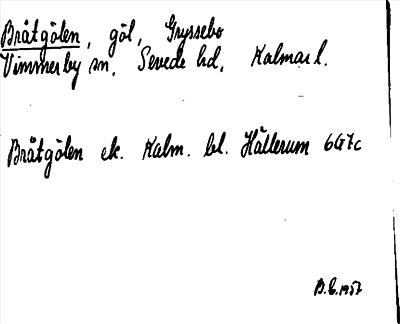 Bråtgölen, göl, Gryssebo
Vimmerby sn, Sevede hd, Kalmar l.
Bråtgölen ek. Kalm. bl. Hällerum 6G7c
B.E. 1957